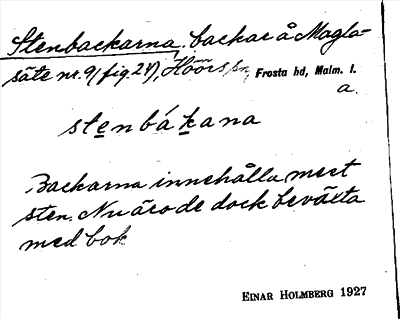 Stenbackarna, backar å Magla-
säte nr. 9 (fig. 24), Höörs sn, Frosta hd, Malm. l.
a.
stenbákana
Backarna innehålla mest
sten. Nu äro de dock beväxta
med bok
EINAR HOLMBERG 1927